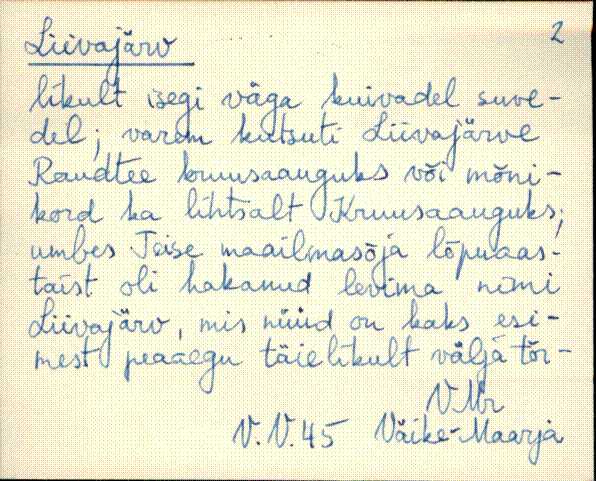 Liivajärv 2
likult isegi väga kuivadel suve-
del; varem kutsuti Liivajärve
Raudtee kruusaauguks või mõni-
kord ka lihtsalt Kruusaauguks;
umbes Teise maailmasõja lõpuaas-
taist oli hakanud levima nimi
Liivajärv, mis nüüd on kaks esi-
mest peaaegu täielikult välja tõr-
V.Mr
V.V.45 Väike-Maarja